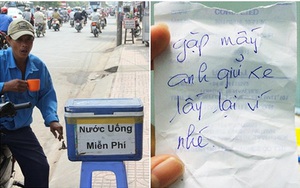 Nước Uống
Miễn Phí
gặp mấy
anh giữ xe
lấy lại ví
nhé